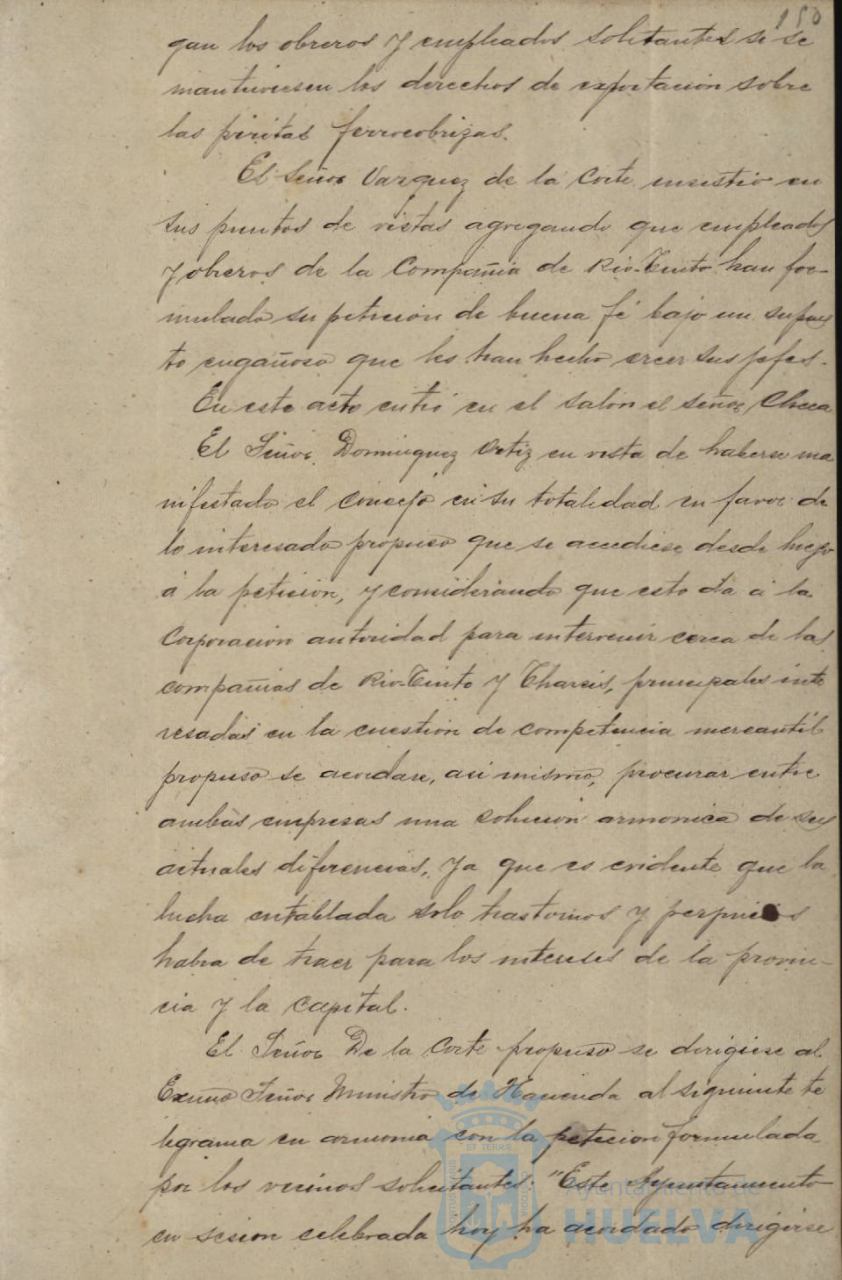 150
gan los obreros y empleados solitantes si se
mantuviesen los derechos de exportación sobre
las piritas ferrocobrizas.
El Señor Vazquez de la Corte insistió en
sus puntos de vistas agregando que empleados
y obreros de la Compañia de Rio-Tinto han for-
mulado su petición de buena fé bajo un supues
to engañoso que les han hecho creer sus jefes.
En este acto entró en el salón el señor Checa
El Señor Dominguez Ortiz en vista de haberse ma
nifestado el concejo en su totalidad en favor de
lo interesado propuso que se accediese desde luego
á la petición, y considerando que esto da á la
Corporación autoridad para intervenir cerca de las
compañias de Rio-Tinto y Tharsis, principales inte
resadas en la cuestión de competencia mercantil
propuso se acordase, asi mismo, procurar entre
ambas empresas una solución armonica de sus
actuales diferencias, ya que es evidente que la
lucha entablada solo trastornos y perjuicios
habra de traer para los intereses de la provin-
cia y la capital.
El Señor De la Corte propuso se dirigiese al
Excmo Señor Ministro de Hacienda el siguiente te
legrama en armonia con la peticion formulada
por los vecinos solicitantes: "Este Ayuntamiento
en sesion celebrada hoy ha acordado dirigirse
Ayuntamiento de
HUELVA